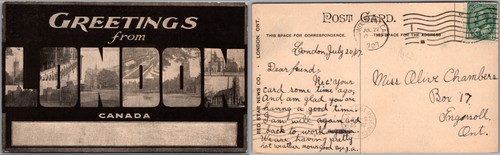 GREETINGS
from
LONDON
CANADA
POST CARD.
THIS SPACE FOR CORRESPONDENCE.
THIS SPACE FOR THE ADDRESS
RED STAR NEWS CO. LONDON, ONT.
London July 20/07.
Dear friend,
Rec. your
card some time ago,
And am glad you are
having a good time.
I am well again and
back to work
We are having pretty
hot weather
Miss Alive Chambers
Box 17
Ingersoll
Ont.